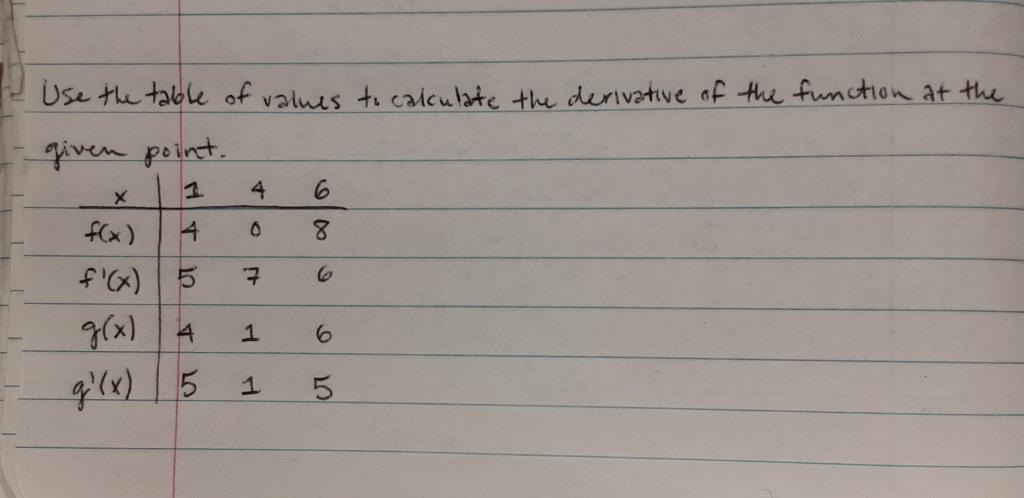 Use the table of values to calculate the derivative of the function at the
given point.
x 1 4 6
f(x) 4 0 8
f'(x) 5 7 6
g(x) 4 1 6
g'(x) 5 1 5